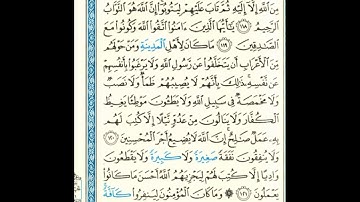 مِنَ اللَّهِ إِلَّا إِلَيْهِ ثُمَّ تَابَ عَلَيْهِمْ لِيَتُوبُوا إِنَّ اللَّهَ هُوَ التَّوَّابُ
الرَّحِيمُ ١١٨ يَا أَيُّهَا الَّذِينَ ءَامَنُوا اتَّقُوا اللَّهَ وَكُونُوا مَعَ
الصَّادِقِينَ ١١٩ مَا كَانَ لِأَهْلِ الْمَدِينَةِ وَمَنْ حَوْلَهُم
مِّنَ الْأَعْرَابِ أَن يَتَخَلَّفُوا عَن رَّسُولِ اللَّهِ وَلَا يَرْغَبُوا بِأَنفُسِهِمْ
عَن نَّفْسِهِ ذَٰلِكَ بِأَنَّهُمْ لَا يُصِيبُهُمْ ظَمَأٌ وَلَا نَصَبٌ
وَلَا مَخْمَصَةٌ فِي سَبِيلِ اللَّهِ وَلَا يَطَئُونَ مَوْطِئًا يَغِيظُ
الْكُفَّارَ وَلَا يَنَالُونَ مِنْ عَدُوٍّ نَّيْلًا إِلَّا كُتِبَ لَهُم
بِهِ عَمَلٌ صَالِحٌ إِنَّ اللَّهَ لَا يُضِيعُ أَجْرَ الْمُحْسِنِينَ ١٢٠
وَلَا يُنفِقُونَ نَفَقَةً صَغِيرَةً وَلَا كَبِيرَةً وَلَا يَقْطَعُونَ
وَادِيًا إِلَّا كُتِبَ لَهُمْ لِيَجْزِيَهُمُ اللَّهُ أَحْسَنَ مَا كَانُوا
يَعْمَلُونَ ١٢١ ۞ وَمَا كَانَ الْمُؤْمِنُونَ لِيَنفِرُوا كَافَّةً